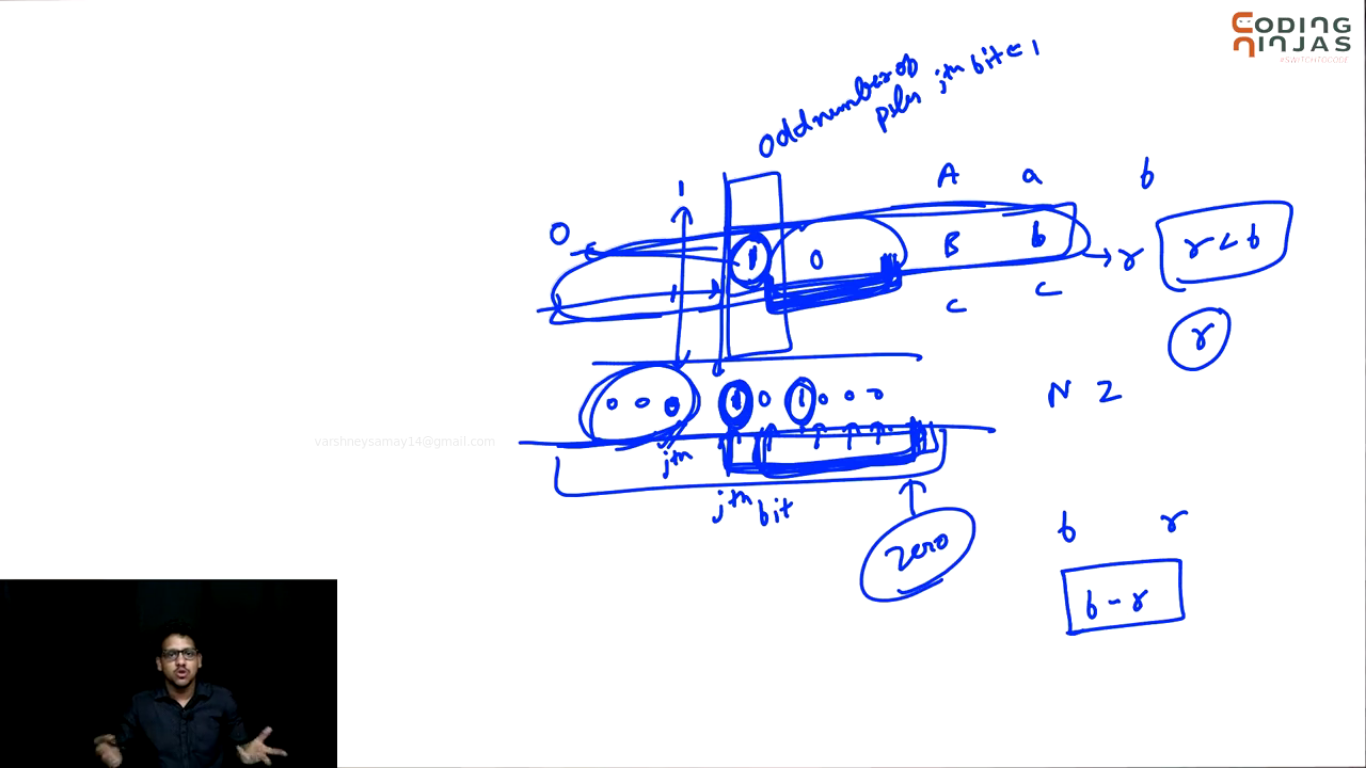 CODING
NINJAS
#SWITCHTOCODE
Odd number of
piles jth bit = 1
A a b
1
0
1 0 B b r r < b
c c
r
0 0 0 1 0 1 0 0 0
N Z
varshneysamay14@gmail.com
jth
jth bit
zero
b r
b - r